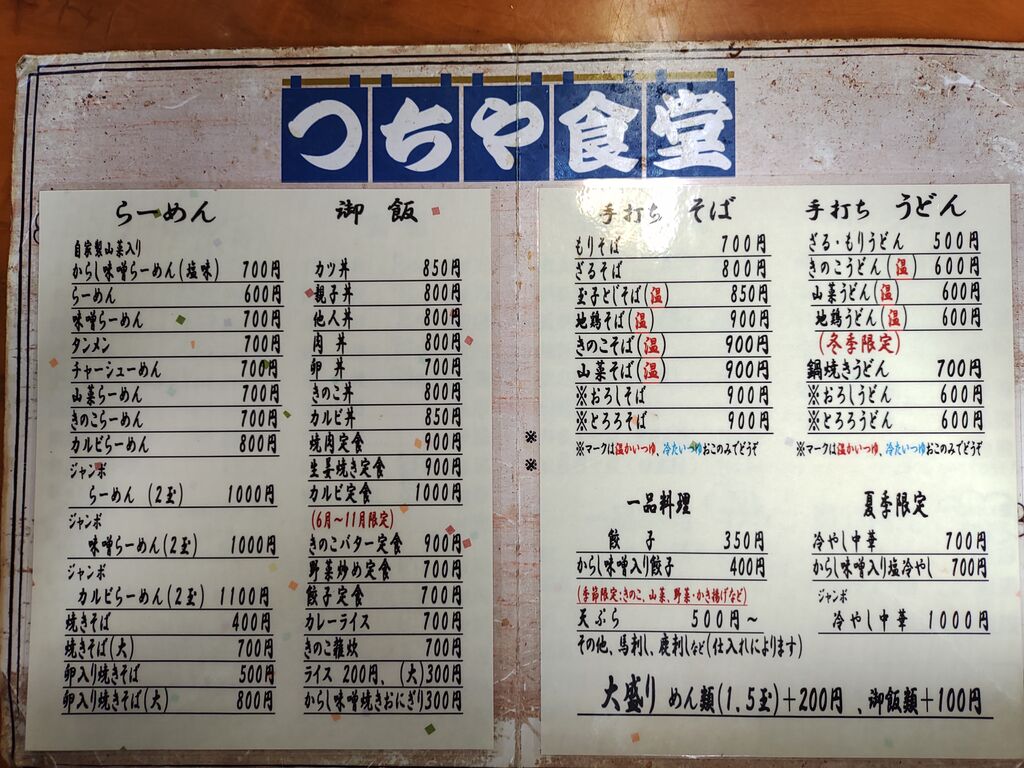 つちや食堂
らーめん
自家製山菜入り
からし味噌らーめん(塩味) 700円
らーめん 600円
味噌らーめん 700円
タンメン 700円
チャーシューめん 700円
山菜らーめん 700円
きのこらーめん 700円
カルビらーめん 800円
ジャンボ
らーめん (2玉) 1000円
ジャンボ
味噌らーめん(2玉) 1000円
ジャンボ
カルビらーめん(2玉) 1100円
焼きそば 400円
焼きそば(大) 700円
卵入り焼きそば 500円
卵入り焼きそば(大) 800円
御飯
カツ丼 850円
親子丼 800円
他人丼 800円
肉丼 800円
卵丼 700円
きのこ丼 800円
カルビ丼 850円
焼肉定食 900円
生姜焼き定食 900円
カルビ定食 1000円
(6月〜11月限定)
きのこバター定食 900円
野菜炒め定食 700円
餃子定食 700円
カレーライス 700円
きのこ雑炊 700円
ライス 200円、(大)300円
からし味噌焼きおにぎり300円
※
※
手打ち そば
もりそば 700円
ざるそば 800円
玉子とじそば(温) 850円
地鶏そば(温) 900円
きのこそば(温) 900円
山菜そば(温) 900円
※おろしそば 900円
※とろろそば 900円
※マークは温かいつゆ、冷たいつゆおこのみでどうぞ
手打ち うどん
ざる・もりうどん 500円
きのこうどん(温) 600円
山菜うどん(温) 600円
地鶏うどん(温) 600円
(冬季限定)
鍋焼きうどん 700円
※おろしうどん 600円
※とろろうどん 600円
※マークは温かいつゆ、冷たいつゆおこのみでどうぞ
一品料理
餃子 350円
からし味噌入り餃子 400円
(季節限定:きのこ、山菜、野菜・かき揚げなど)
天ぷら 500円〜
その他、馬刺し、鹿刺しなど(仕入れによります)
夏季限定
冷やし中華 700円
からし味噌入り塩冷やし 700円
ジャンボ
冷やし中華 1000円
大盛り めん類(1.5玉)+200円、御飯類+100円